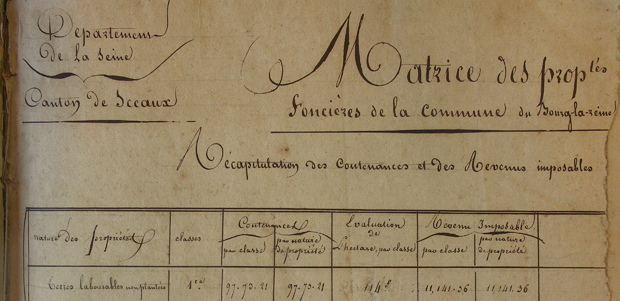 Département
De La Seine
Canton de Sceaux
Matrice des prop.tés
Foncières de la Commune du Bourg-la-reine
Récapitulation des Contenances et des Revenus imposables
nature des propriétés classes Contenances Evaluation de L'hectare, par classe Revenu Imposable
par classe par nature de propriété par classe par nature de propriété
Terres labourables non plantées 1.re 97-73-21 97-73-21 114.f 11,141.36 11,141.36